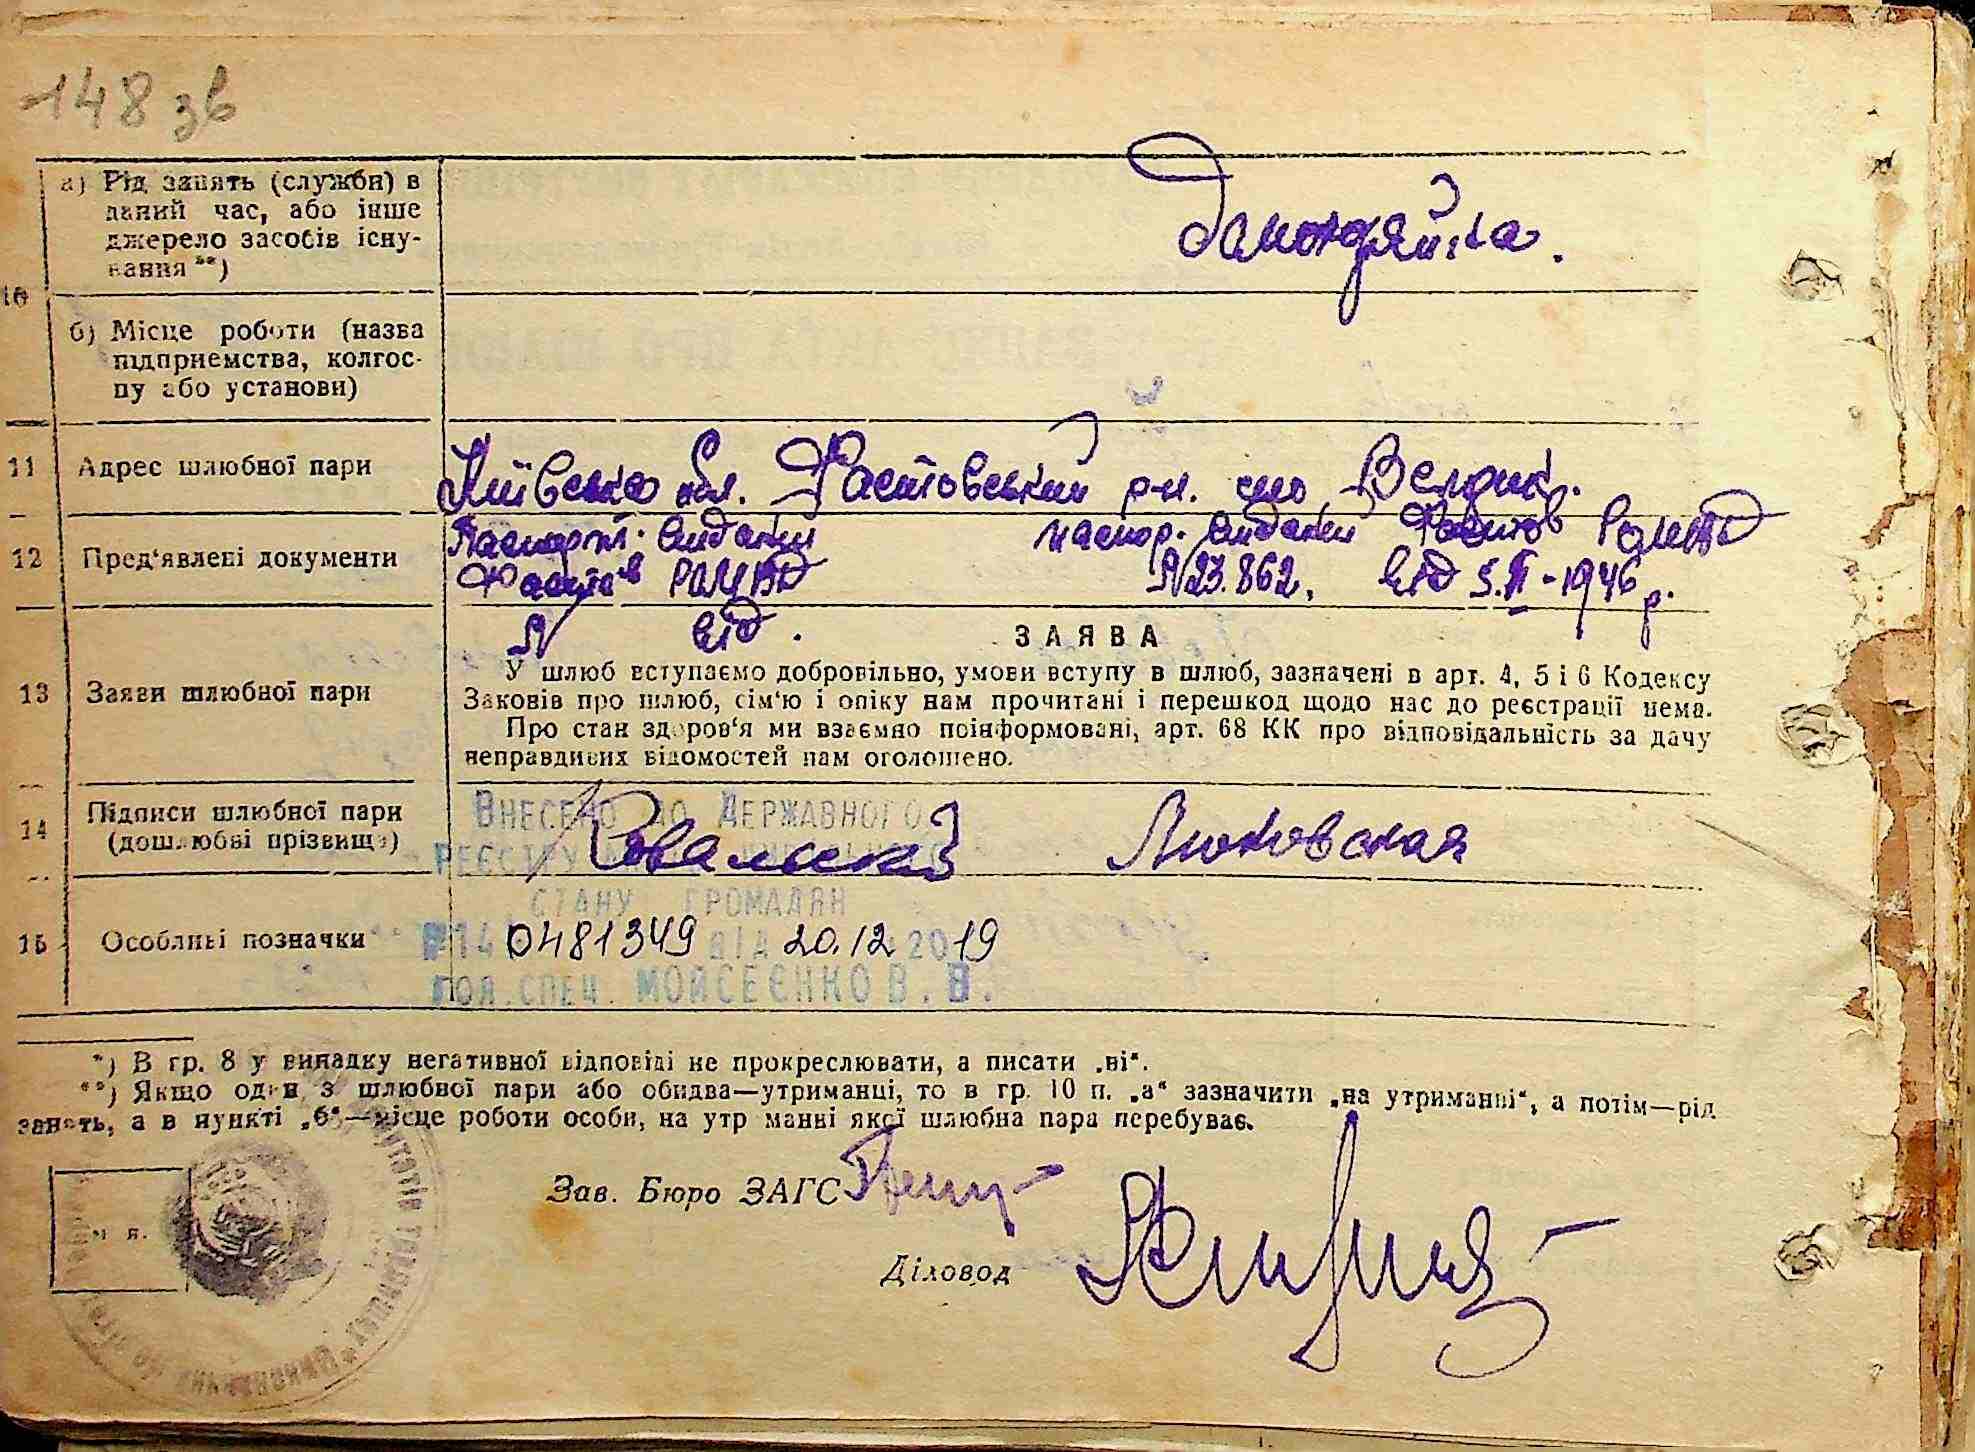 148 зв
а) Рід занять (служби) в
даний час, або інше
джерело засобів існу-
вання **)
Домохазяйка.
10
б) Місце роботи (назва
підприємства, колгос-
пу або установи)
11 Адрес шлюбної пари Київська обл. Фастовський р-н. село Велик.
12 Пред'явлені документи
Паспорт. виданий паспор. виданий Фастов РОМВД
Фастів РОМВД №23.862, від 5.VI-1946 р.
№ від .
ЗАЯВА
13 Заяви шлюбної пари
У шлюб вступаємо добровільно, умови вступу в шлюб, зазначені в арт. 4, 5 і 6 Кодексу
Законів про шлюб, сім'ю і опіку нам прочитані і перешкод щодо нас до реєстрації нема.
Про стан здоров'я ми взаємно поінформовані, арт. 68 КК про відповідальність за дачу
неправдивих відомостей нам оголошено.
14 Підписи шлюбної пари
(дошлюбні прізвища)
Ковальский
ВНЕСЕНО ДО ДЕРЖАВНОГО
РЕЄСТРУ
СТАНУ ГРОМАДЯН
15 Особливі позначки
0481349 від 20.12 2019
ГОЛ. СПЕЦ. МОЙСЕЄНКО В. В.
*) В гр. 8 у випадку негативної відповіді не прокреслювати, а писати „ні“.
**) Якщо один з шлюбної пари або обидва—утриманці, то в гр. 10 п. „а“ зазначити „на утриманні“, а потім—рід
занять, а в пункті „б“—місце роботи особи, на утриманні якої шлюбна пара перебуває.
м п.
Зав. Бюро ЗАГС
Діловод